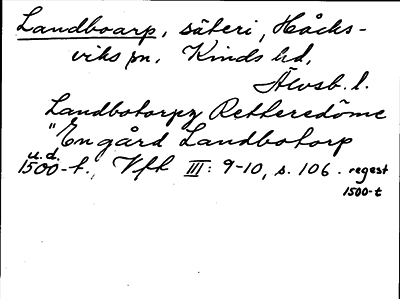 Landboarp, säteri, Håcks-
viks sn, Kinds hd,
Älvsb. l.
Landbotorpz Retteredöme
"En gård Landbotorp
u.d.
1500-t., Vfh III: 9-10, s. 106. regest
1500-t